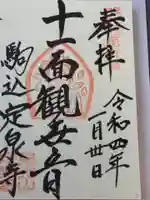 奉拝
令和四年
一月廿日
十一面観世音
駒込定泉寺